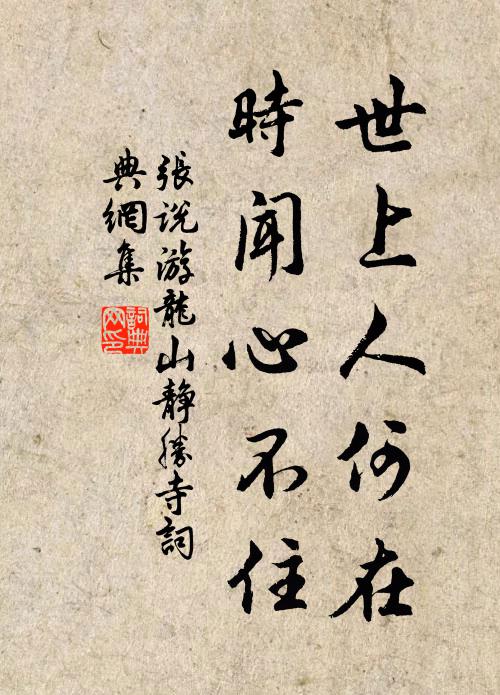 世上人何在
時聞心不住
張説游龍山静勝寺詞
典網集
詞典
网印